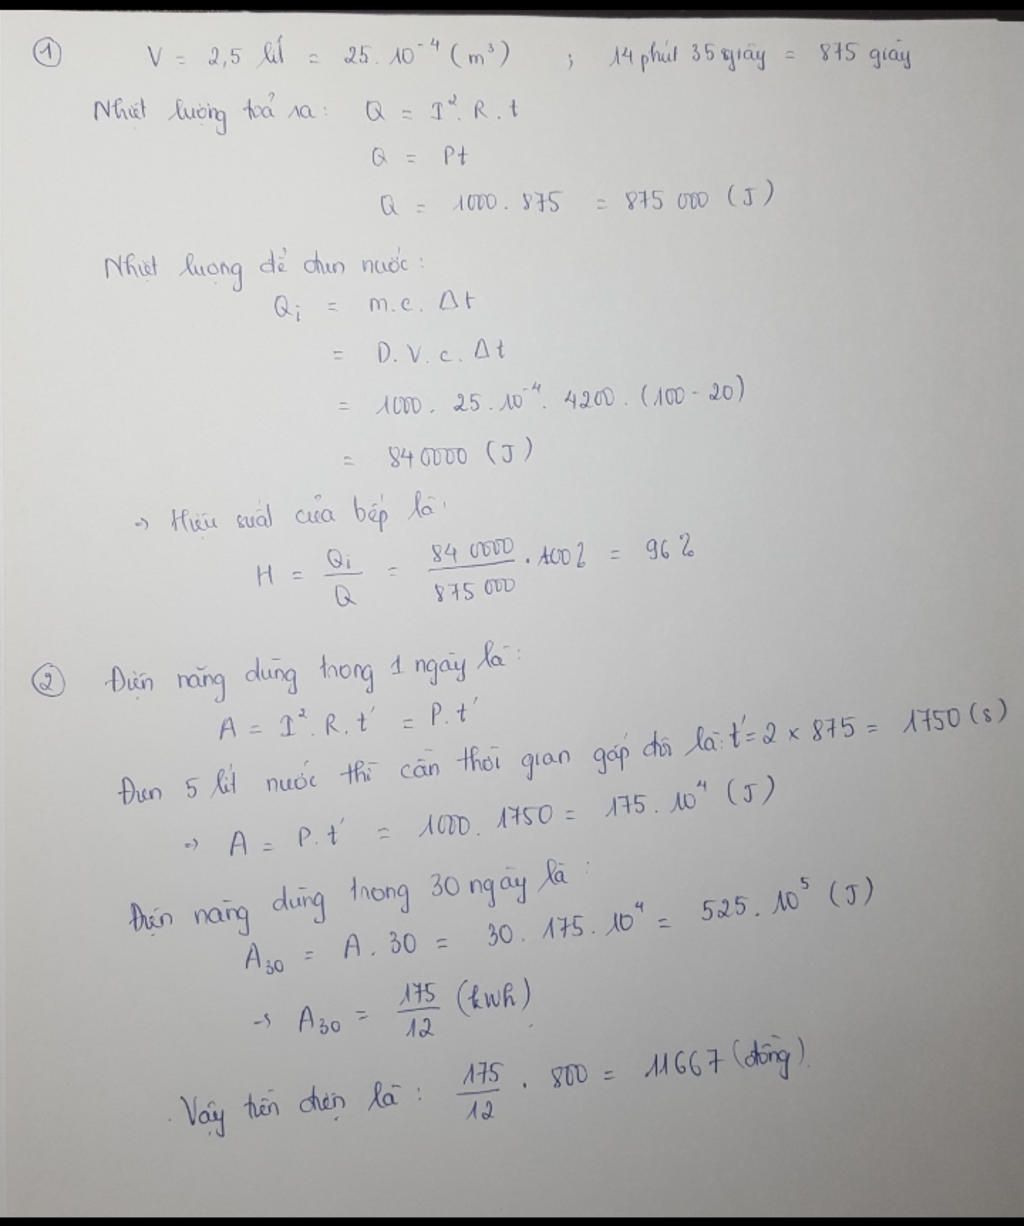 ① V = 2,5 lít = 25.10⁻⁴ (m³) ; 14 phút 35 giây = 875 giây
Nhiệt lượng toả ra: Q = I².R.t
Q = Pt
Q = 1000.875 = 875 000 (J)
Nhiệt lượng để đun nước:
Qᵢ = m.c.Δt
= D.V.c.Δt
= 1000.25.10⁻⁴.4200.(100-20)
= 840000 (J)
→ Hiệu suất của bếp là:
H = Qᵢ/Q = 840000/875000 . 100% = 96%
② Điện năng dùng trong 1 ngày là:
A = I².R.t' = P.t'
Đun 5 lít nước thì cần thời gian gấp đôi là: t' = 2 × 875 = 1750 (s)
→ A = P.t' = 1000.1750 = 175.10⁴ (J)
Điện năng dùng trong 30 ngày là:
A₃₀ = A.30 = 30.175.10⁴ = 525.10⁵ (J)
→ A₃₀ = 175/12 (kwh)
. Vậy tiền điện là: 175/12 . 800 = 11667 (đồng).